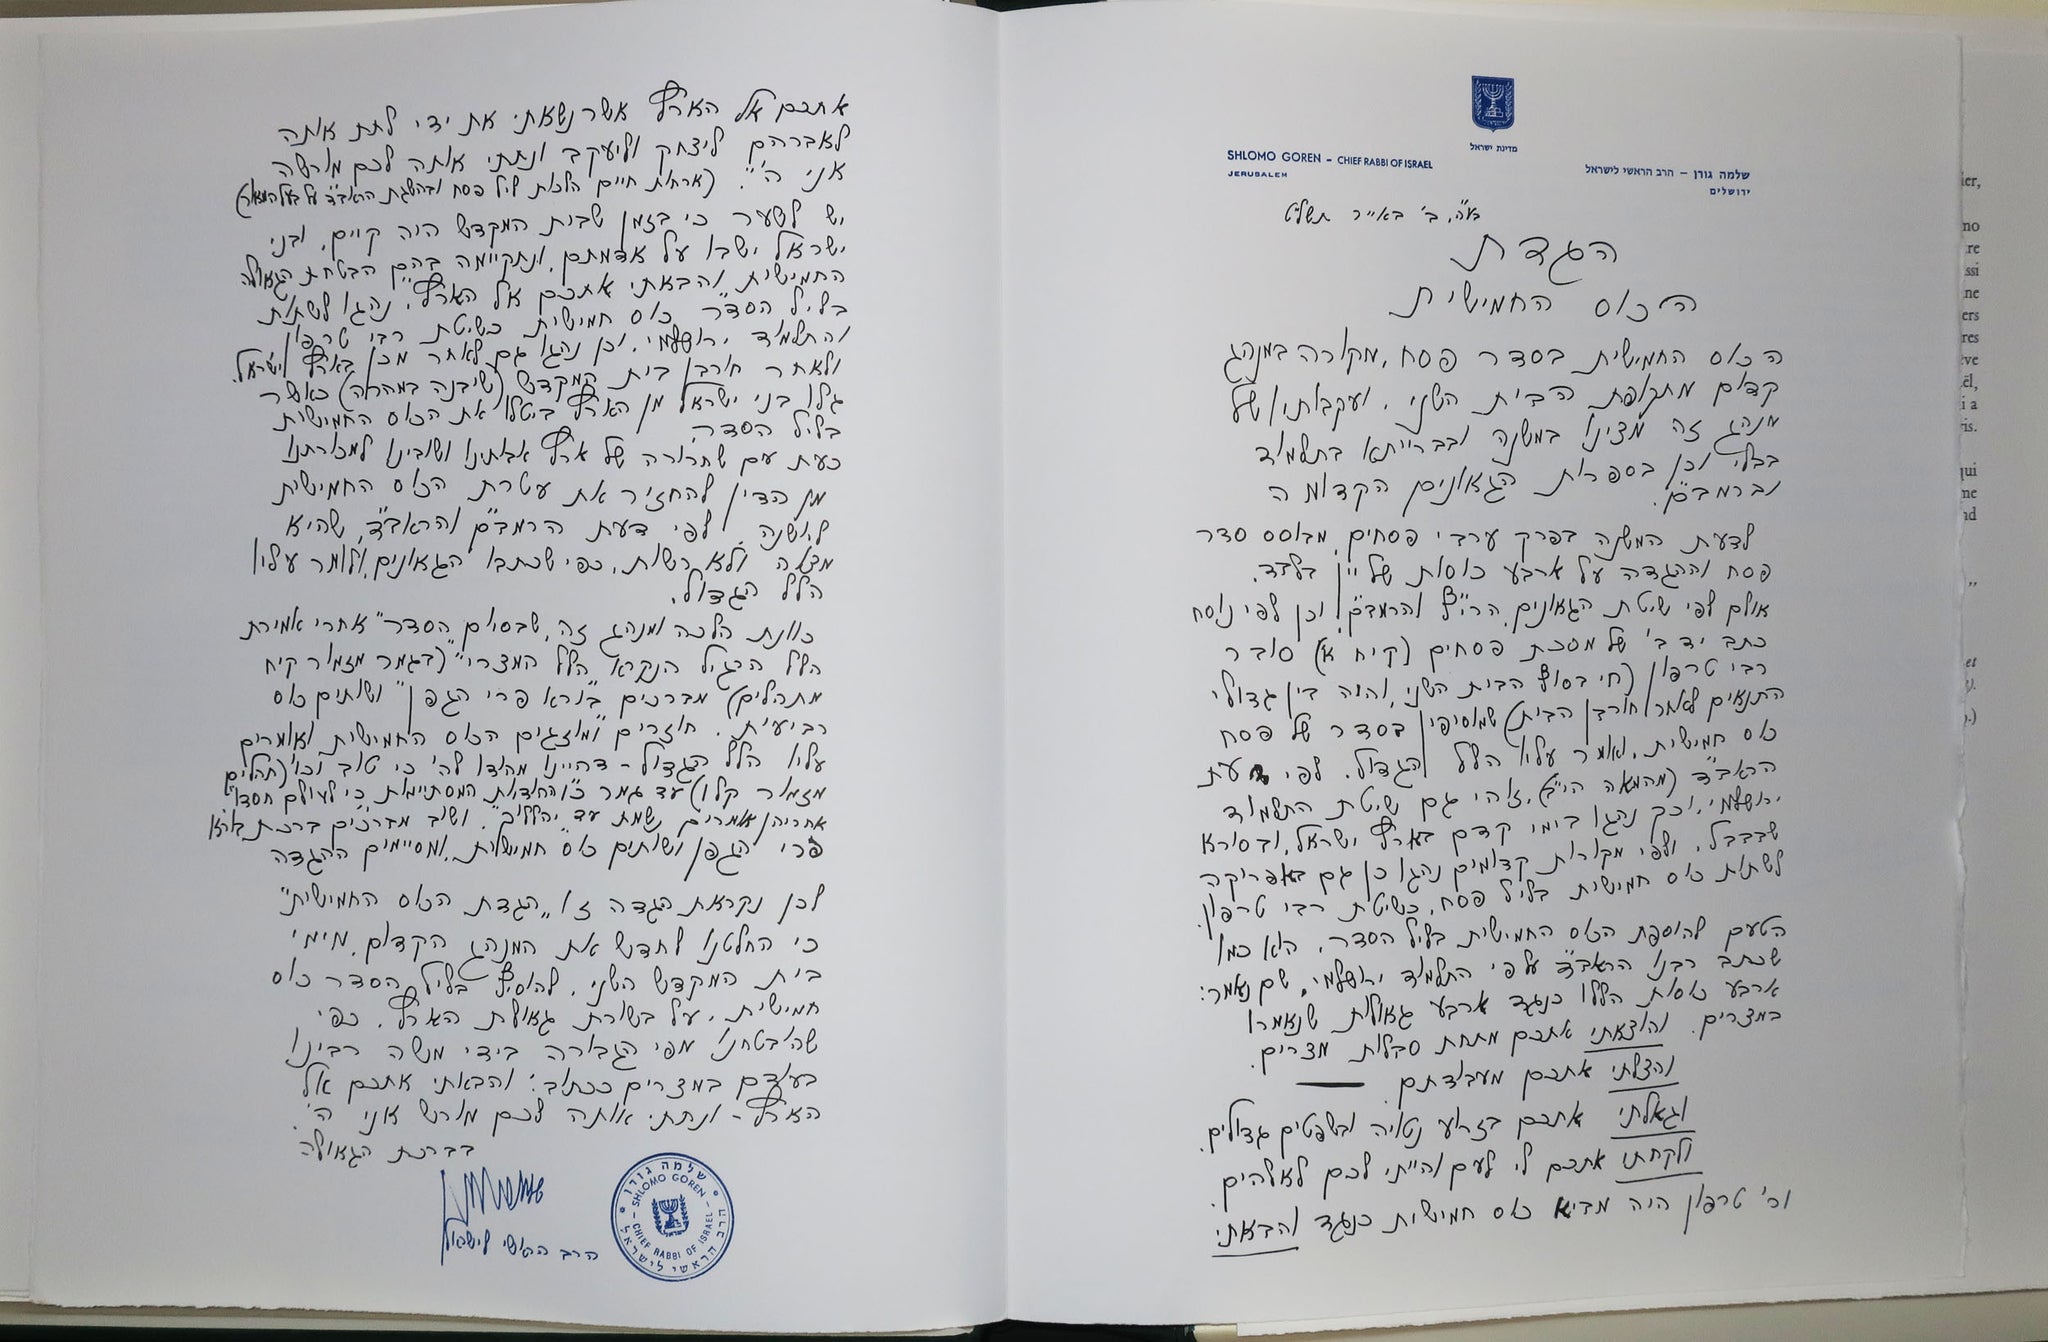 מדינת ישראל
SHLOMO GOREN – CHIEF RABBI OF ISRAEL
JERUSALEM
שלמה גורן – הרב הראשי לישראל
ירושלים
בע"ה, ב' באייר תשל"ט
הגדת
הכוס החמישית
הכוס החמישית בסדר פסח, מקורה במנהג
קדום מתקופת הבית השני, ועקבותיו של
מנהג זה מצינו במשנה ובברייתא בתלמוד
בבלי וכן בספרות הגאונים הקדומה
וברמב"ם.
לדעת המשנה בפרק ערבי פסחים, מבוסס סדר
פסח וההגדה על ארבע כוסות של יין בלבד.
אולם לפי שיטת הגאונים, הרי"ף והרמב"ם, וכן לפי נוסח
כתב יד ב' של מסכת פסחים (קיח א) סובר
רבי טרפון (חי בסוף הבית השני, והיה בין גדולי
התנאים לאחר חורבן הבית) שמוסיפין בסדר של פסח
כוס חמישית, ואמר עליו הלל הגדול. לפי דעת
הראב"ד (מהמאה הי"ב), זוהי גם שיטת התלמוד
ירושלמי, וכך נהגו בימי קדם בארץ ישראל, ובסורא
שבבבל. ולפי מקורות קדומים נהגו כן גם באפריקה
לשתות כוס חמישית בליל פסח, כשיטת רבי טרפון.
הטעם להוספת הכוס החמישית בליל הסדר, הוא כמו
שכתב רבנו הראב"ד על פי התלמוד ירושלמי, שם נאמר:
ארבע כוסות הללו כנגד ארבע גאולות שנאמרו
במצרים. והוצאתי אתכם מתחת סבלות מצרים.
והצלתי אתכם מעבודתם.
וגאלתי אתכם בזרוע נטויה ובשפטים גדולים.
ולקחתי אתכם לי לעם והייתי לכם לאלהים.
ור' טרפון היה מביא כוס חמישית כנגד והבאתי
אתכם אל הארץ אשר נשאתי את ידי לתת אותה
לאברהם ליצחק וליעקב ונתתי אותה לכם מורשה
אני ה'". (ארחות חיים הלכות ליל פסח ובהשגת הראב"ד על בעל המאור)
יש לשער כי בזמן שבית המקדש היה קיים, ובני
ישראל ישבו על אדמתם, ונתקיימה בהם הבטחת הגאולה
החמישית "והבאתי אתכם אל הארץ", נהגו לשתות
בליל הסדר כוס חמישית כשיטת רבי טרפון
והתלמוד ירושלמי, וכן נהגו גם לאחר מכן בארץ ישראל.
ולאחר חורבן בית המקדש (שיבנה במהרה) כאשר
גלו בני ישראל מן הארץ ביטלו את הכוס החמישית
בליל הסדר.
כעת עם שחרורה של ארץ אבותינו ושובינו למכורתנו
מן הדין להחזיר את עטרת הכוס החמישית
ליושנה. לפי דעת הרמב"ם והראב"ד, שהיא
מצוה ולא רשות, כפי שכתבו הגאונים, ולומר עליו
הלל הגדול.
כוונת הלכה ומנהג זה, "שבסיום הסדר" אחרי אמירת
הלל הרגיל הנקרא "הלל המצרי" (בגמר מזמור קיח
מתהלים) מברכים "בורא פרי הגפן" ושותים כוס
רביעית. חוזרים ומוזגים הכוס החמישית ואומרים
עליו הלל הגדול - דהיינו מהודו לה' כי טוב וכו' (תהלים
מזמור קלו) עד גמר כ"ו ההודאות המסתיימות כי לעולם חסדו".
אחריהן אומרים נשמת עד "יהללוך". ושוב מברכים ברכת בורא
פרי הגפן ושותים כוס חמישית, ומסיימים ההגדה
לכן נקראת הגדה זו "הגדת הכוס החמישית"
כי החלטנו לחדש את המנהג הקדום, מימי
בית המקדש השני, להוסיף בליל הסדר כוס
חמישית, על בשורת גאולת הארץ, כפי
שהובטחנו מפי הגבורה בידי משה רבינו
בעודם במצרים ככתוב: והבאתי אתכם אל
הארץ - ונתתי אותה לכם מורשה אני ה'.
בברכת הגאולה
הרב הראשי לישראל
שלמה גורן
SHLOMO GOREN
CHIEF RABBI OF ISRAEL
הרב הראשי לישראל